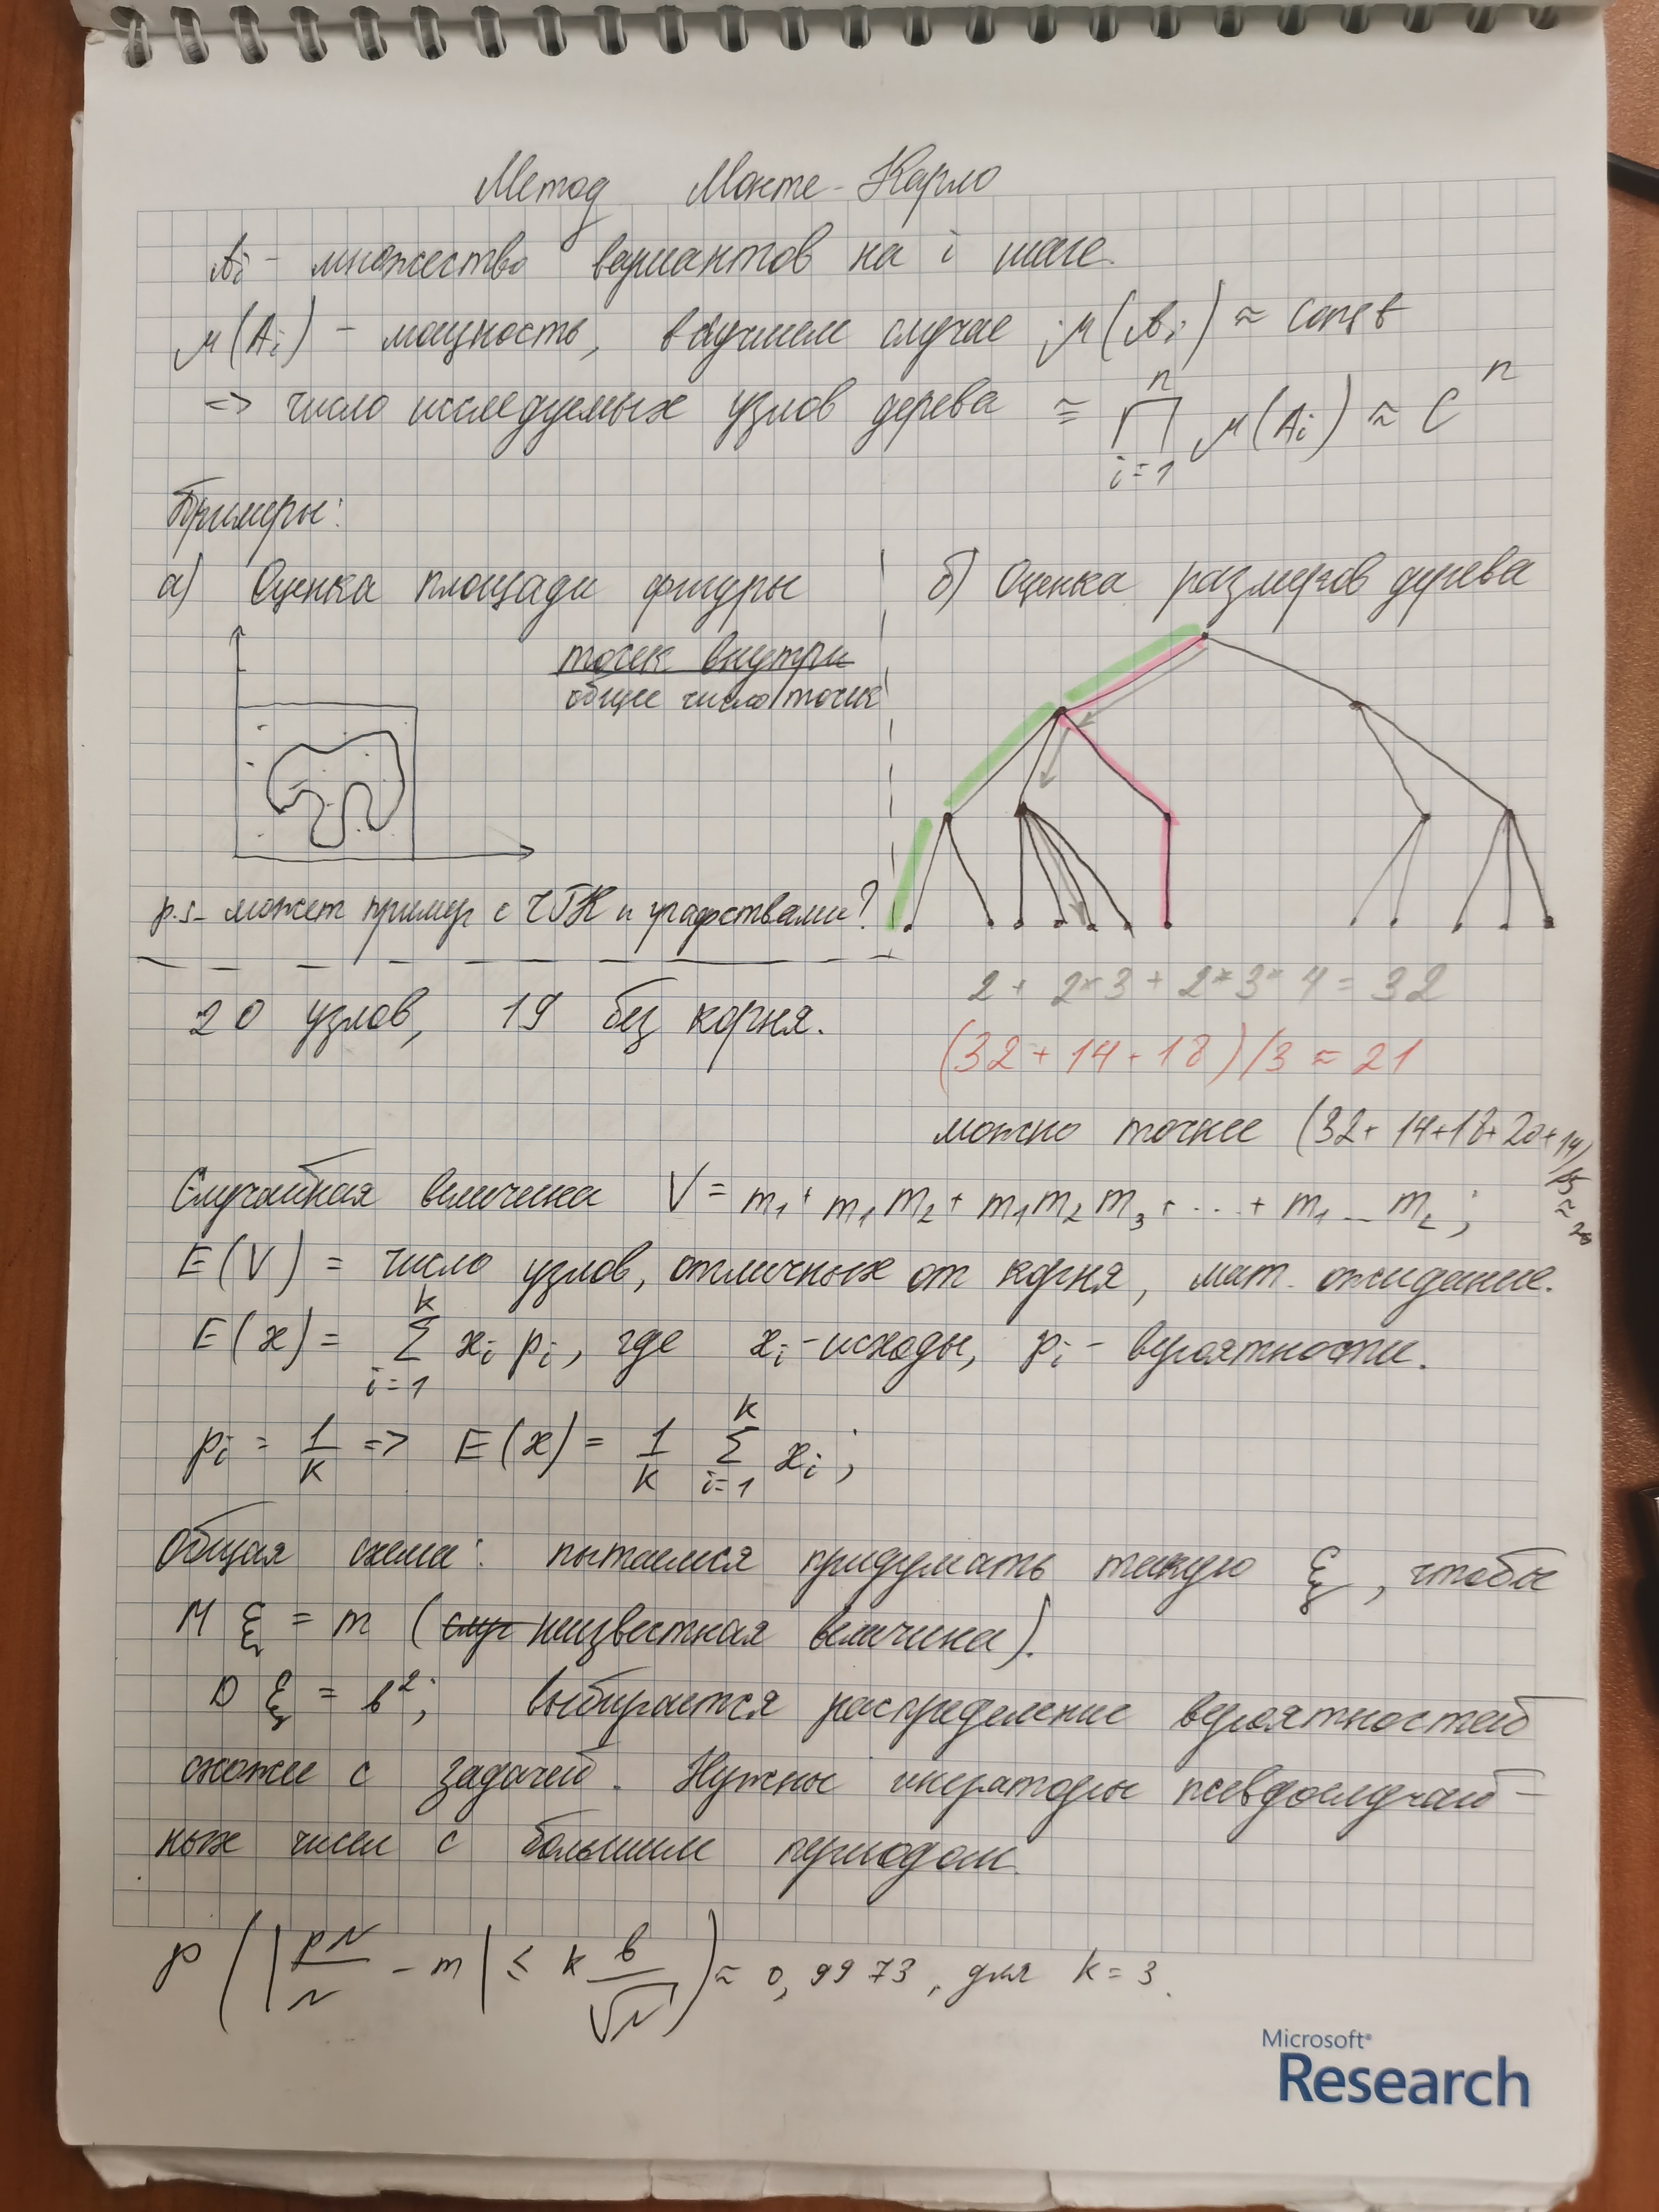 Метод Монте-Карло
Ai - множество вариантов на i шаге.
μ(Ai) - мощность, в лучшем случае μ(Ai) ≈ const
=> число исследуемых узлов дерева ≈ n∏i=1 μ(Ai) ≈ C^n
Примеры:
а) Оценка площади фигуры
точек внутри
общее число точек
p.s- может пример с ЧГК и графствами?
б) Оценка размеров дерева
2 + 2*3 + 2*3*4 = 32
(32 + 14 + 18)/3 ≈ 21
можно точнее (32+14+18+20+14)/5 ≈ 20
20 узлов, 19 без корня.
Случайная величина V = m1 + m1 m2 + m1 m2 m3 + ... + m1 ... m2;
E(V) = число узлов, отличных от корня, мат. ожидание.
E(x) = k∑i=1 xi pi, где xi - исходы, pi - вероятности.
pi = 1/k => E(x) = 1/k k∑i=1 xi;
Общая схема: пытаемся придумать такую ξ, чтобы
M ξ = m (случ неизвестная величина).
D ξ = b²; выбирается распределение вероятностей
схожее с задачей. Нужны генераторы псевдослучай-
ных чисел с большим периодом.
P(|PN/N - m| ≤ k b/√N) ≈ 0,9973, для k = 3.
Microsoft®
Research